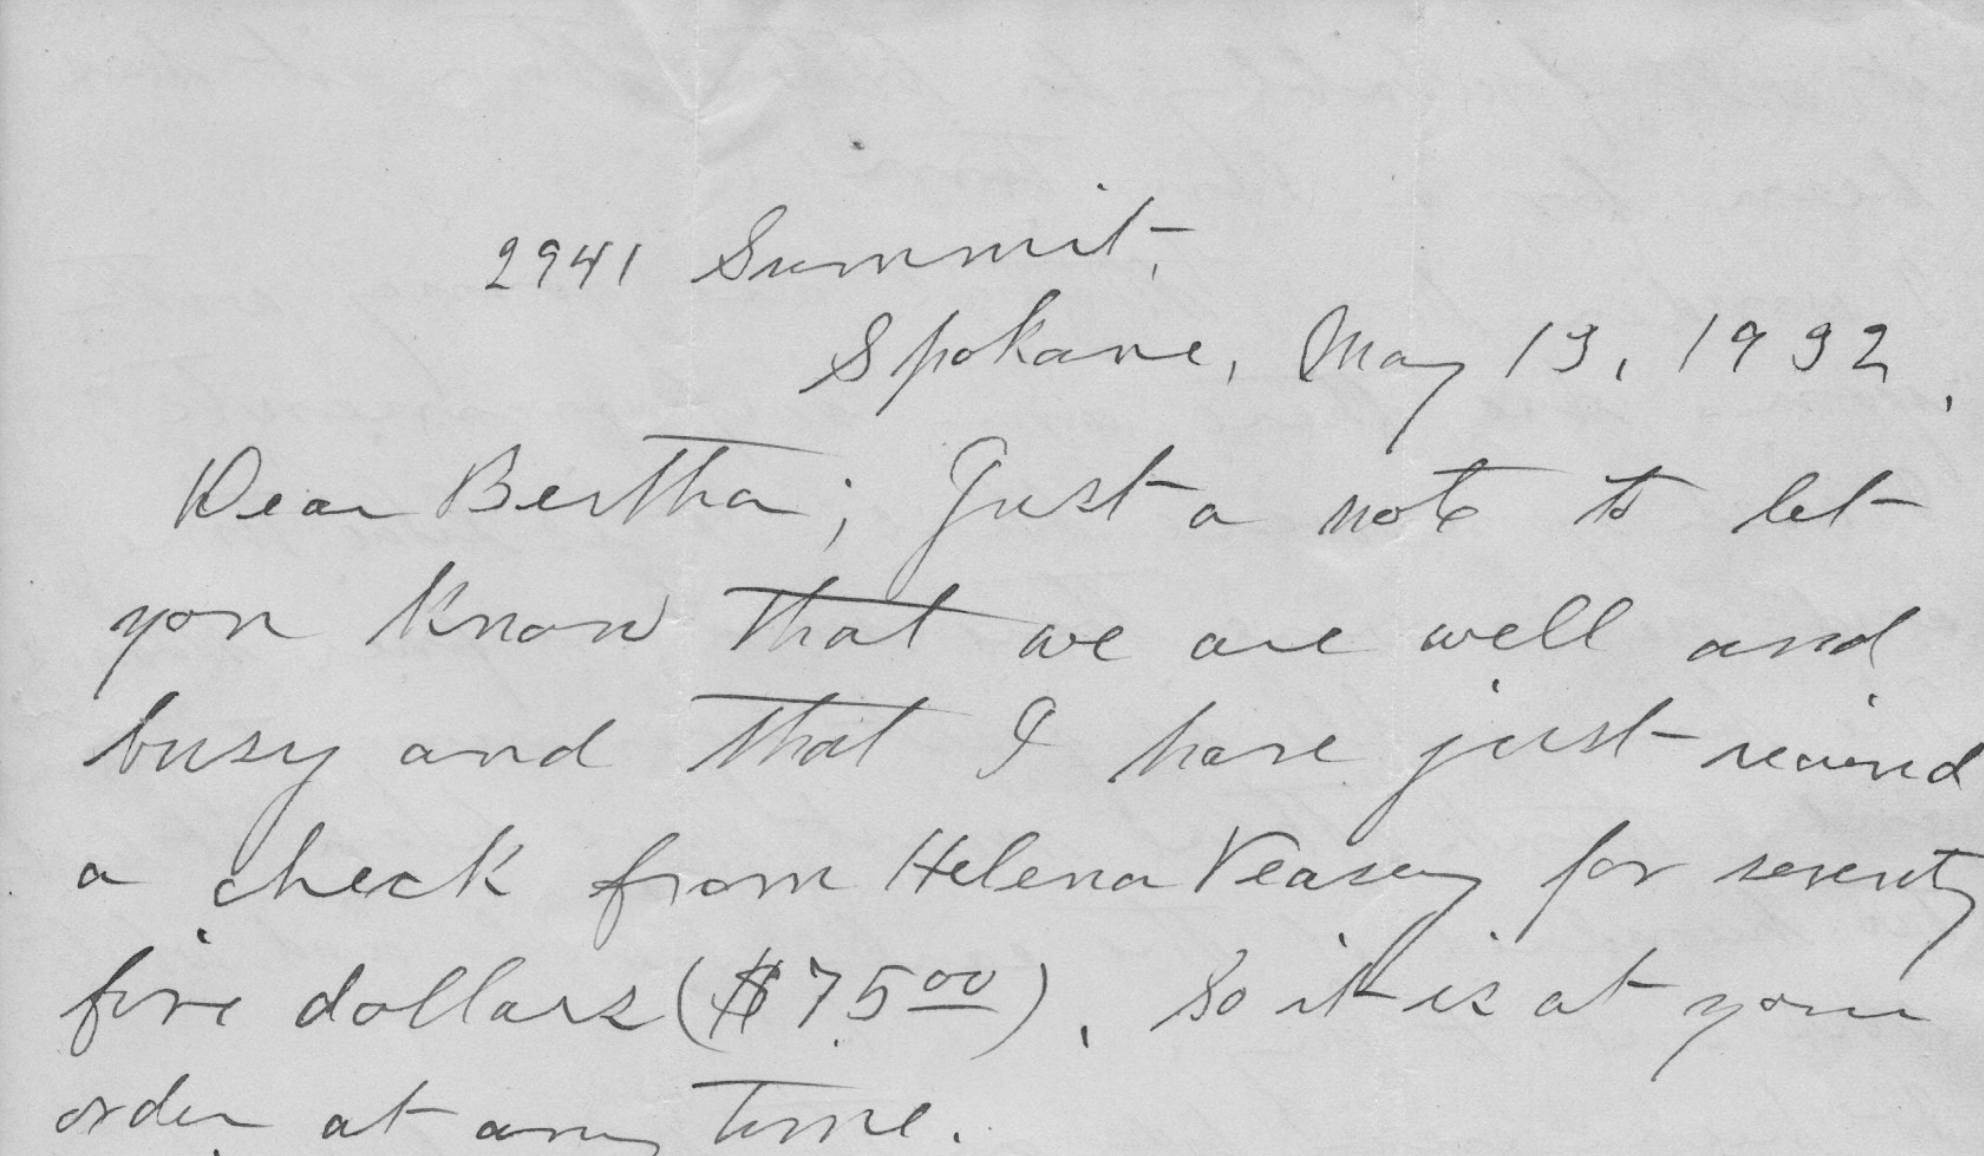 2941 Summit,
Spokane, May 13, 1932.
Dear Bertha; Just a note to let
you know that we are well and
busy and that I have just received
a check from Helena Veasey for seventy
five dollars ($75 00). So it is at your
order at any time.